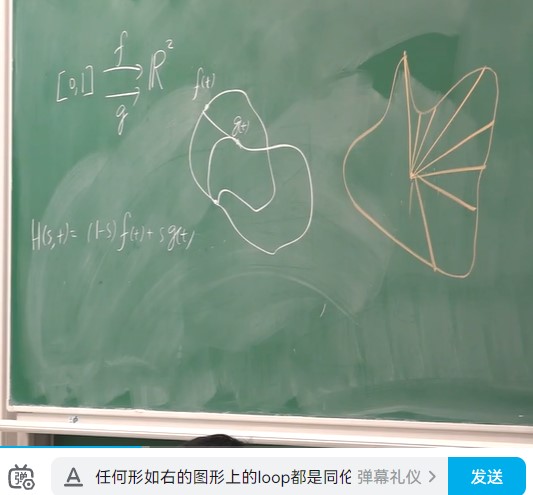 [0,1] f g ℝ²
f(t)
g(t)
H(s,t)= (1-s)f(t)+sg(t)
弹 A 任何形如右的图形上的loop都是同伦 弹幕礼仪 > 发送